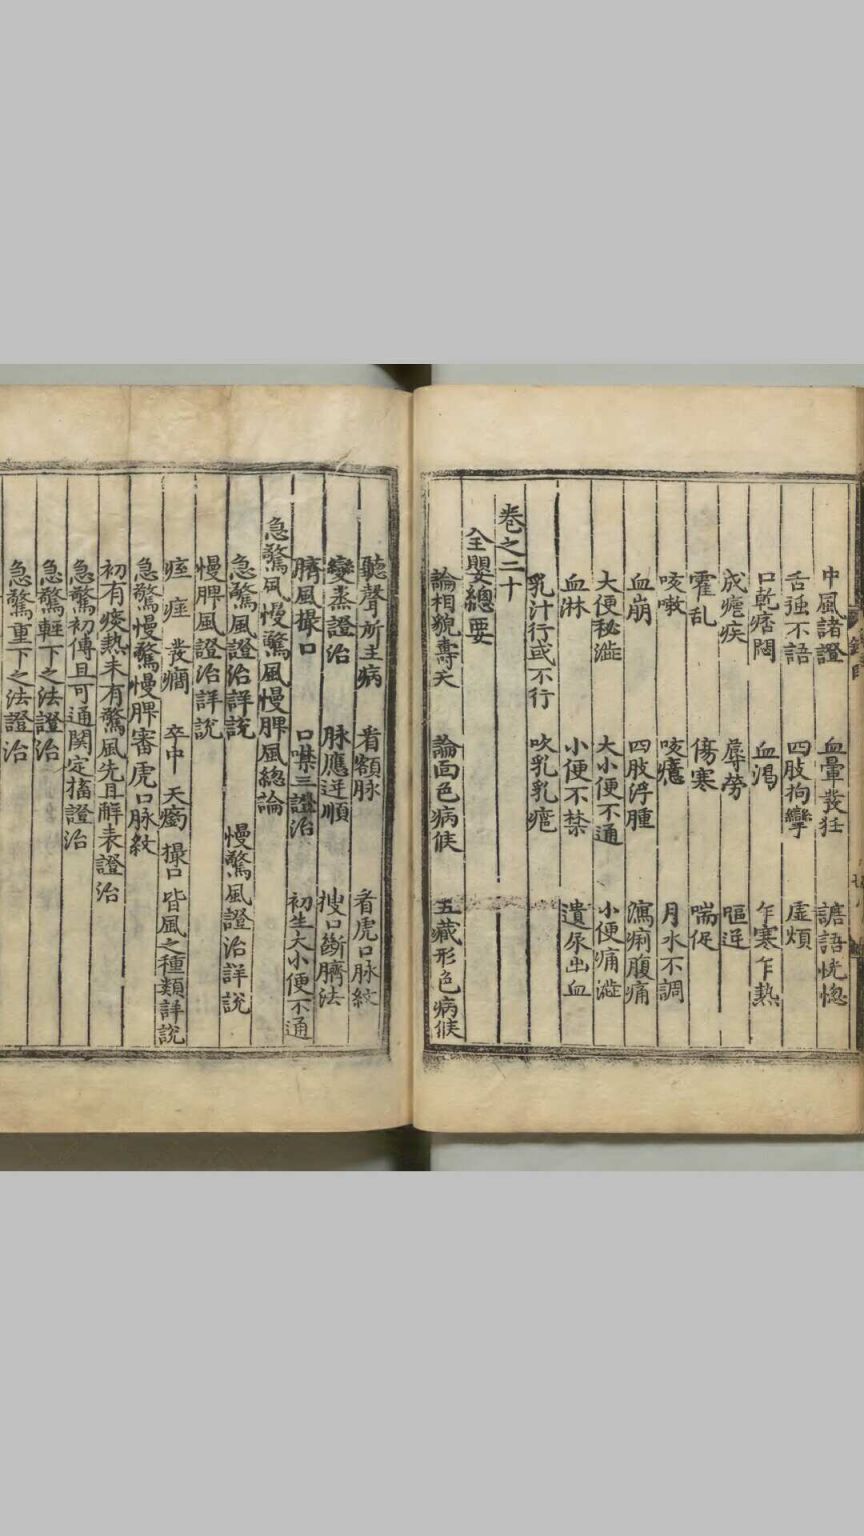 中風諸證 血暈發狂 譫語恍惚
舌强不語 四肢拘攣 虛煩
口乾痞悶 血渴 乍寒乍熱
成瘧疾 蓐勞 嘔逆
霍亂 傷寒 喘促
咳嗽 咳癔 月水不調
血崩 四肢浮腫 瀉痢腹痛
大便秘澁 大小便不通 小便痛澁
血淋 小便不禁 遺尿出血
乳汁行或不行 吹乳乳瘡
卷之二十
全嬰總要
論相貌壽夭 論面色病候 五藏形色病候
聽聲所主病 看額脉 看虎口脉紋
變蒸證治 脉應逆順 拽口斷臍法
臍風撮口 口噤三證治 初生大小便不通
急驚風慢驚風慢脾風總論
急驚風證治詳說 慢驚風證治詳說
慢脾風證治詳說
痙 痓 發癇 卒中 天癇 撮口皆風之種類詳說
急驚慢驚慢脾審虎口脉紋
初有痰熱未有驚風先且解表證治
急驚初傳且可通關定搐證治
急驚輕下之法證治
急驚重下之法證治